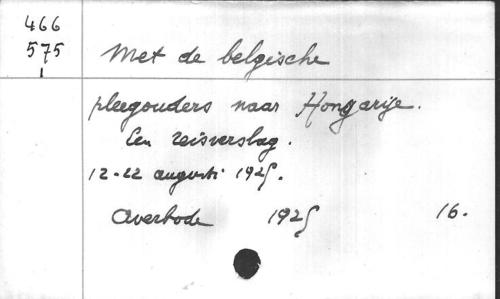 466
575
1
Met de belgische
pleegouders naar Hongarije.
Een reisverslag.
12-22 augusti 1925.
Averbode 1925 16.